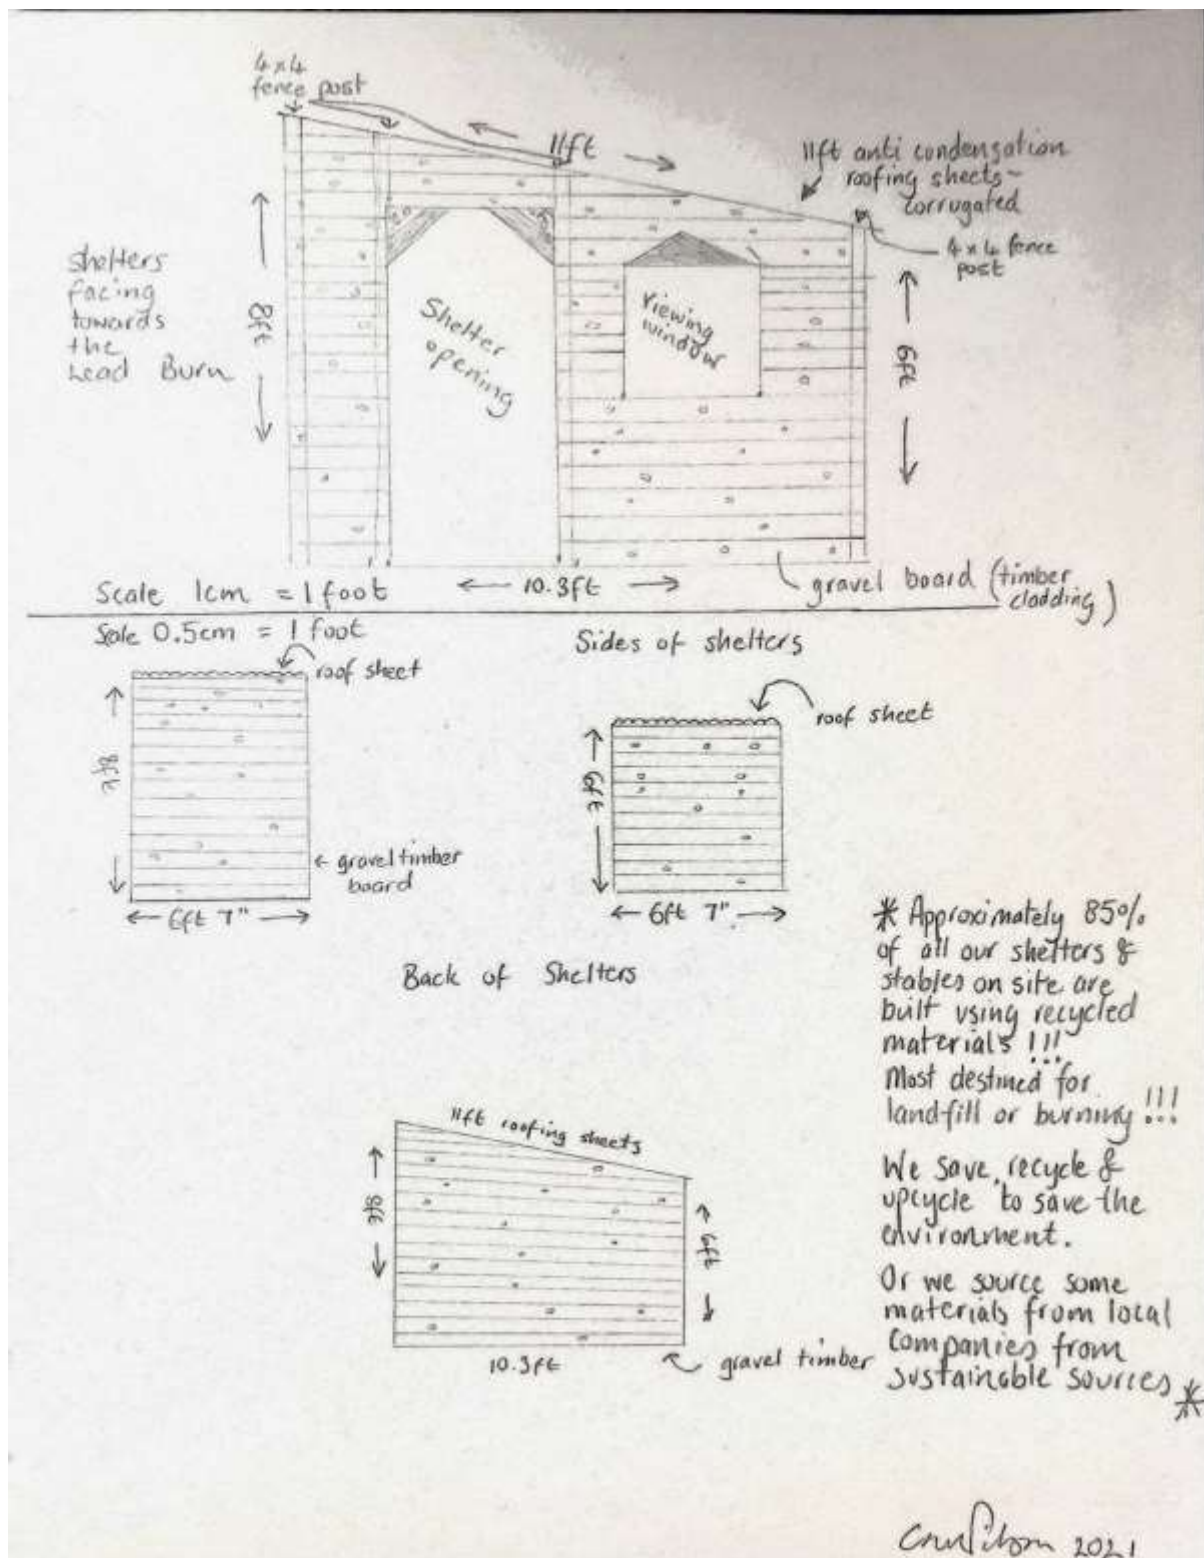 4x4
fence post
11ft
11ft anti condensation
roofing sheets-
corrugated
4x4 fence
post
shelters
facing
towards
the
Lead Burn
8ft
Shelter
opening
Viewing
window
6ft
Scale 1cm = 1 foot
10.3ft
gravel board (timber
cladding)
Scale 0.5cm = 1 foot
Sides of shelters
roof sheet
roof sheet
8ft
6ft
gravel timber
board
6ft 7"
6ft 7"
Back of Shelters
* Approximately 85%
of all our shelters &
stables on site are
built using recycled
materials !!!
Most destined for
landfill or burning !!!
We save, recycle &
upcycle to save the
environment.
Or we source some
materials from local
companies from
sustainable sources *
11ft roofing sheets
8ft
6ft
10.3ft
gravel timber
2021